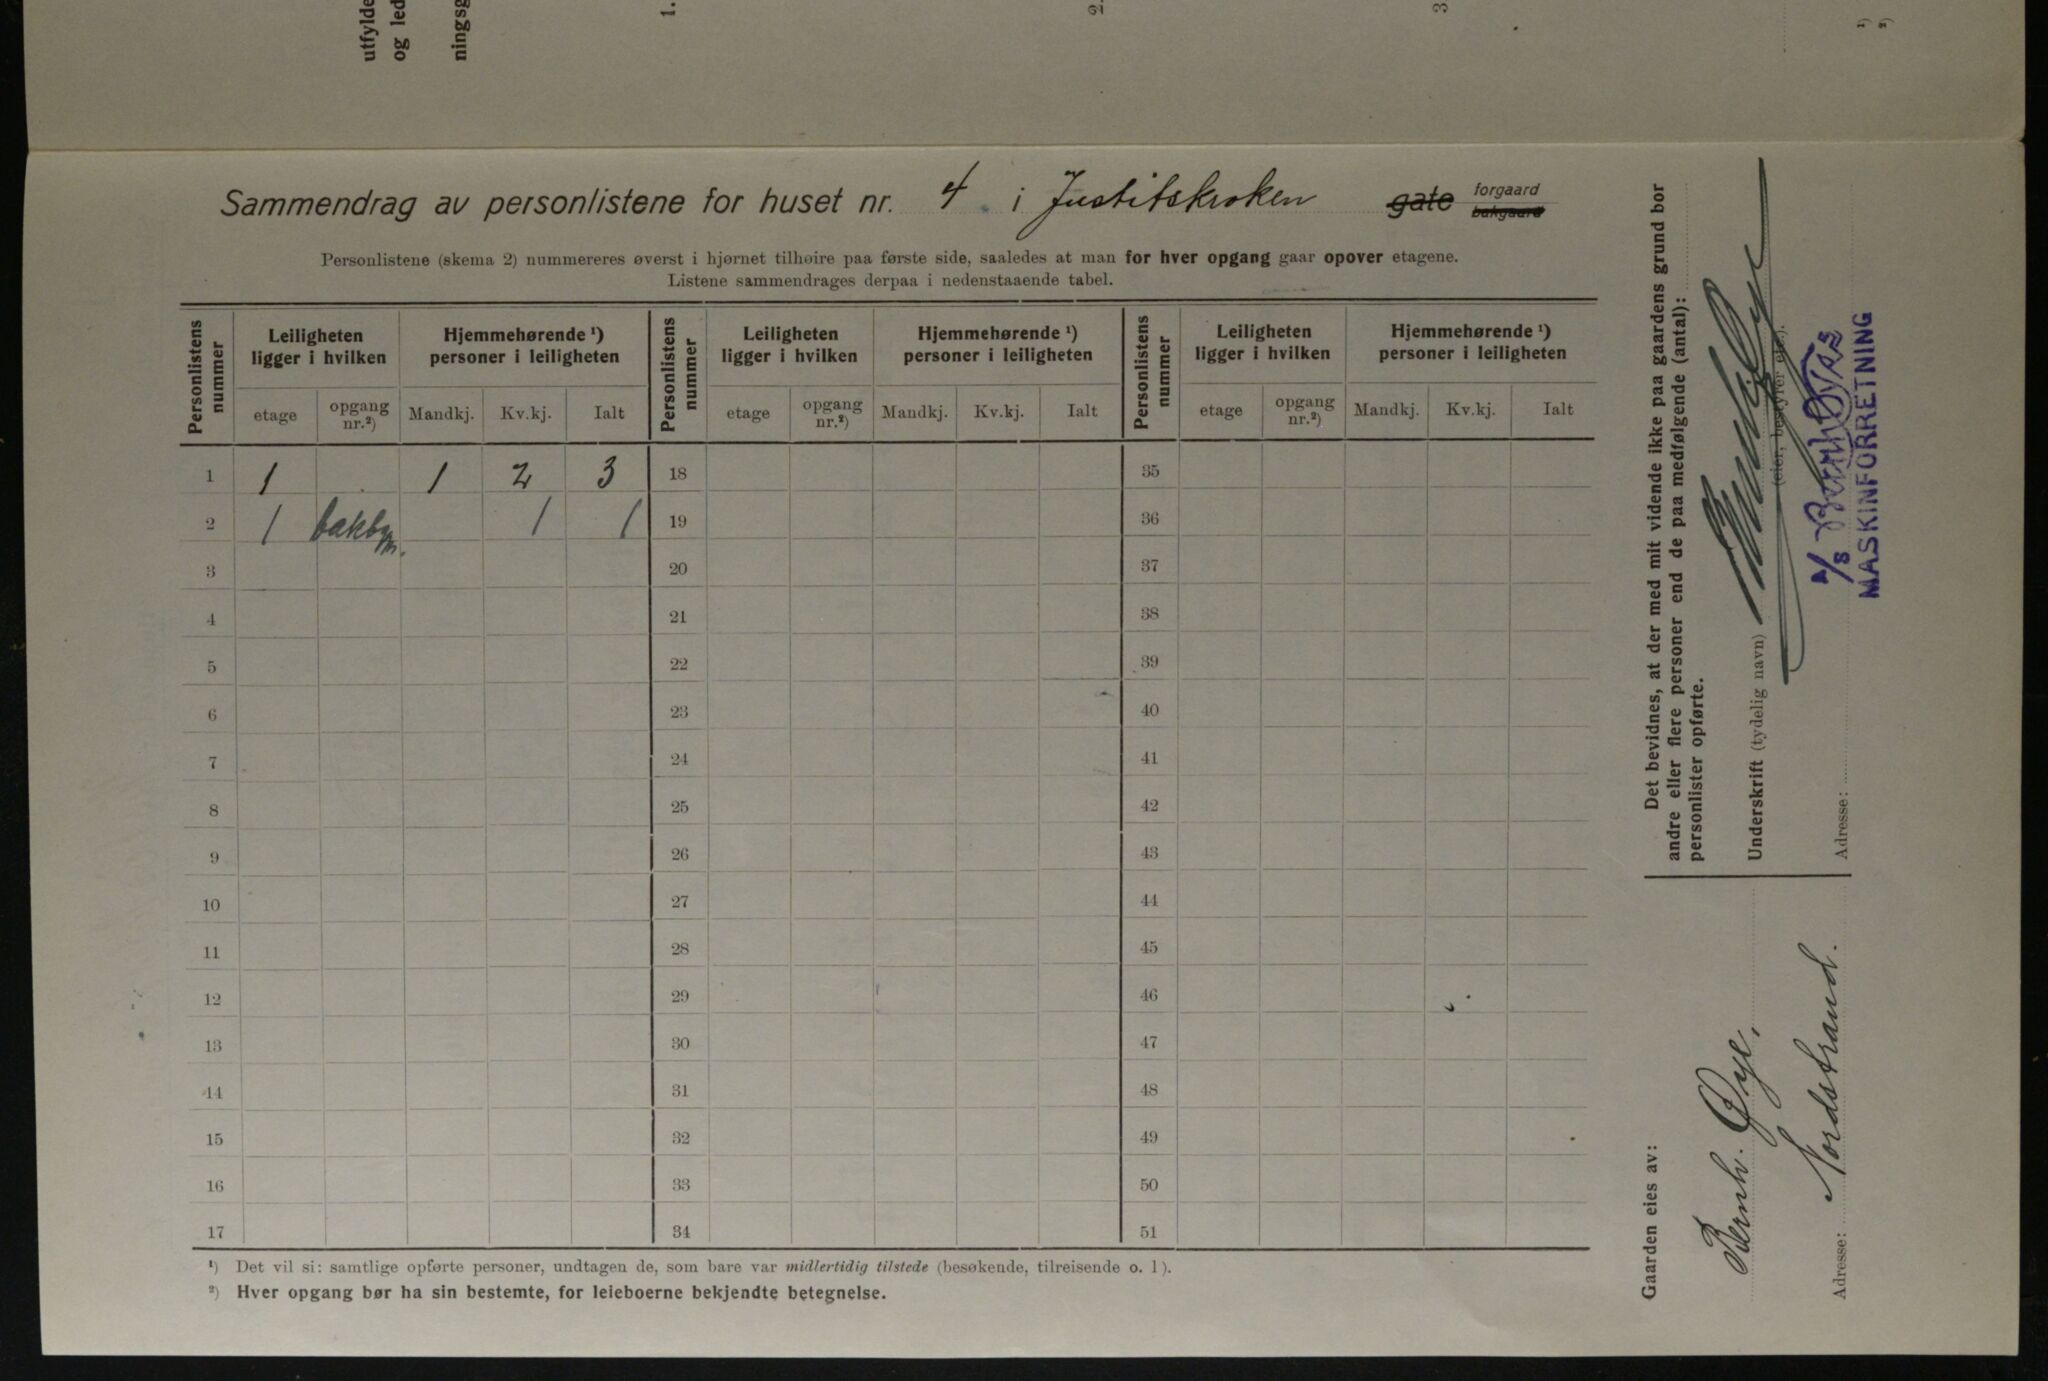 utfylde
og led
ningsg
1.
2.
3
¹)
²)
Sammendrag av personlistene for huset nr. 4 i Justitskroken gate forgaard bakgaard
Personlistene (skema 2) nummereres øverst i hjørnet tilhøire paa første side, saaledes at man for hver opgang gaar opover etagene.
Listene sammendrages derpaa i nedenstaaende tabel.
Personlistens nummer Leiligheten ligger i hvilken Hjemmehørende ¹) personer i leiligheten Personlistens nummer Leiligheten ligger i hvilken Hjemmehørende ¹) personer i leiligheten Personlistens nummer Leiligheten ligger i hvilken Hjemmehørende ¹) personer i leiligheten
etage opgang nr.²) Mandkj. Kv.kj. Ialt etage opgang nr.²) Mandkj. Kv.kj. Ialt etage opgang nr.²) Mandkj. Kv.kj. Ialt
1 1 1 2 3 18 35
2 1 bakbygn. 1 1 19 36
3 20 37
4 21 38
5 22 39
6 23 40
7 24 41
8 25 42
9 26 43
10 27 44
11 28 45
12 29 46
13 30 47
14 31 48
15 32 49
16 33 50
17 34 51
¹) Det vil si: samtlige opførte personer, undtagen de, som bare var midlertidig tilstede (besøkende, tilreisende o. l).
²) Hver opgang bør ha sin bestemte, for leieboerne bekjendte betegnelse.
Gaarden eies av:
Bernh. Øye,
Adresse: Nordstrand.
Det bevidnes, at der med mit vidende ikke paa gaardens grund bor
andre eller flere personer end de paa medfølgende (antal):
personlister opførte.
Underskrift (tydelig navn)
(eier, bestyrer etc.).
A/S Bernh. Øye
MASKINFORRETNING
Adresse: